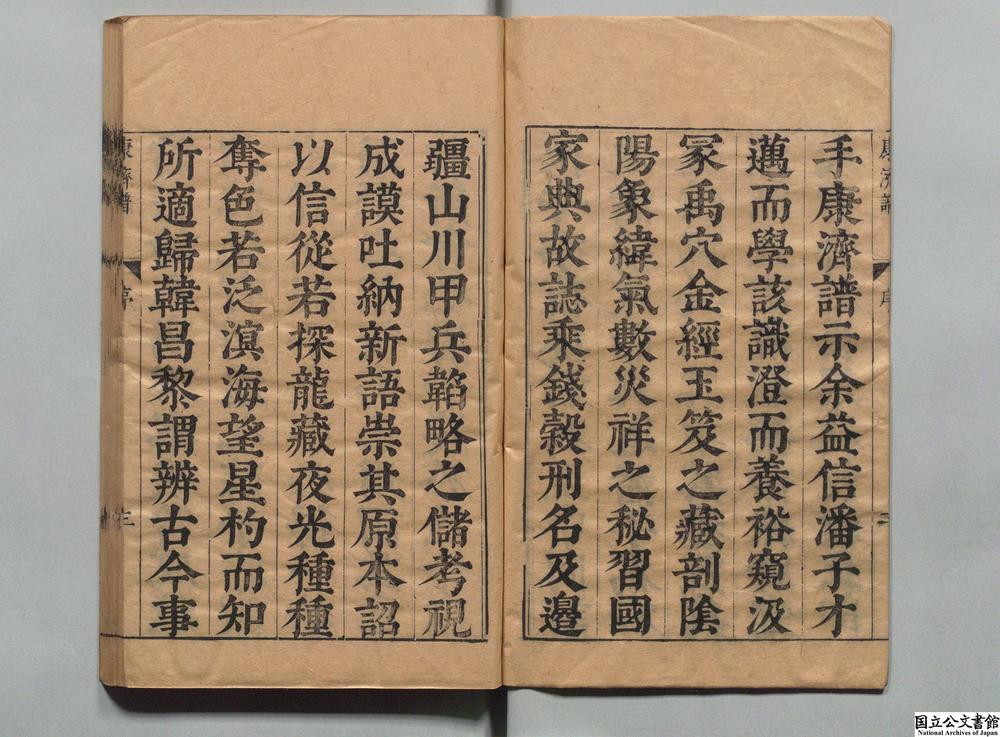 手康濟譜示余益信潘子才
邁而學該識澄而養裕窺汲
冢禹穴金經玉笈之藏剖陰
陽象緯氣數災祥之秘習國
家典故誌乘錢穀刑名及邊
疆山川甲兵韜略之儲考視
成謨吐納新語崇其原本詔
以信從若探龍藏夜光種種
奪色若泛溟海望星杓而知
所適歸韓昌黎謂辨古今事
康濟譜
序
三
国立公文書館
National Archives of Japan